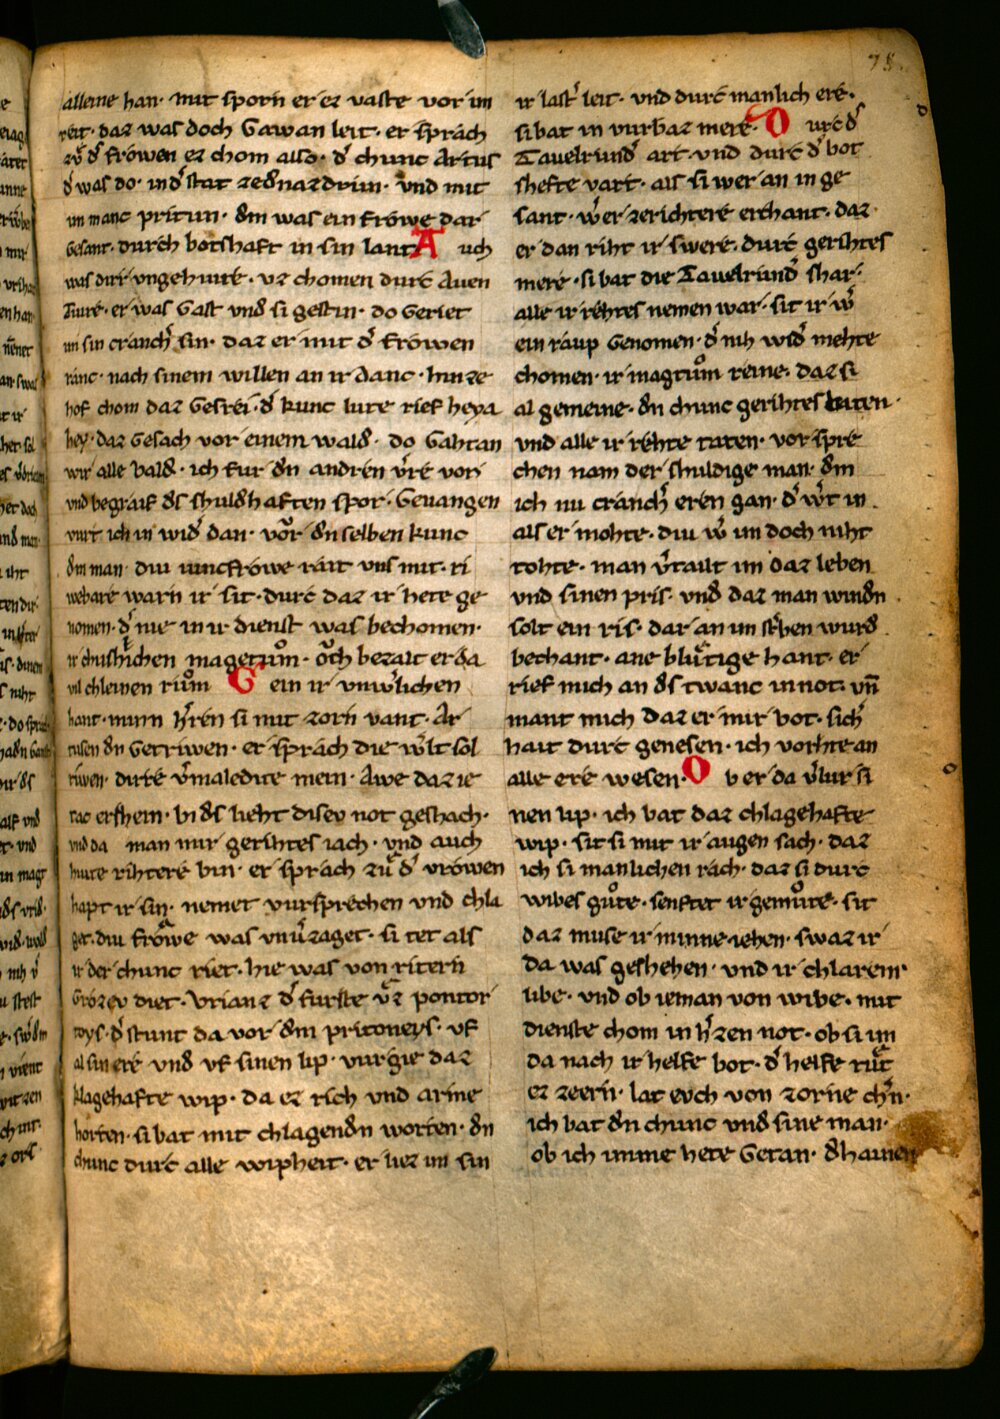 78.
alleine han· mit sporn er ez vaste vor im
reit· daz was doch Gawan leit· er sprach
zv̊ d͛ frowen ez chom also· d͛ chunc Artus
d͛ was do· in d͛ stat ze dꝛnazdrun· vnd mit
im manc pritun· dem was ein frowe dar
Gesant· durch botshaft in sin lant A uch
was diꝛre vngehiure· vz chomen durc Auen
Tiure· er was Gast vnd si gestin· do Geriet
im sin cranch͛ sin· daz er mit d͛ frowen
ranc· nach sinem willen an ir danc· hinze
hof chom daz Gesrei· d͛ kunc lute rief heya
hey· daz Gesach vor einem wald· do Gahtan
wir alle bald· ich fur den andren v͛re vor
vnd begraif des shuldhaften spor· Geuangen
vurt ich in wid͛ dan· vor den selben kunc
dem man· diu iuncfrowe rait vns mit· ri
webare warn ir sit· durc daz ir hete ge
nomen· d͛ nie in ir dienst was bechomen·
ir chushlichen magetum· och bezalt er da
vil chleinen rum G ein ir vnw͛lichen
hant· minn h͛ren si mit zorn vant· Ar
tusen den Getriwen· er sprach die w͛lt sol
riwen· dirre v͛maledite mein· Awe daz ie
tac ershein· bi des lieht disev not geshach·
vnd da man mir gerihtes iach· vnd auch
hiute rihtere bin· er sprach zů d͛ vrowen
hapt ir sin· nemet vursprechen vnd chla
get· diu frowe was vnv͛zaget· si tet als
ir der chunc riet· hie was von ritern
Grozev diet· Vrianz d͛ furste vz pontor
toys· d͛ stunt da vor dem pritoneys· vf
al sin ere vnd vf sinen lip· vurgie daz
klagehafte wip· da ez rich vnd arme
horten· si bat mit chlagenden worten· den
chunc durc alle wipheit· er liez im sin
ir last͛ leit· vnd durc manlich ere·
si bat in vurbaz mere· D urc d͛
Tauelrund͛ art· vnd durc d͛ bot
shefte vart· als si wer an in ge
sant· w͛er ze rihtere erchant· daz
er dan riht ir swere· durc gerihtes
mere· si bat die Tauelrund͛ shar·
alle ir rehtes nemen war· sit ir w͛
ein raup Genomen· d͛ nih wid͛ mehte
chomen· ir magtům reine· daz si
al gemeine· den chunc gerihtes baten·
vnd alle ir rehte taten· vor spre
chen nam der shuldige man· dem
ich nu cranch͛ eren gan· d͛ w͛t in
als er mohte· diu w͛ im doch niht
tohte· man v͛tailt im daz leben
vnd sinen pris· vnd daz man winden
solt ein ris· dar an im st͛ben wurd
bechant· ane blůtige hant· er
rief mich an des twanc in not· vn̄
mant mich daz er mir bot· sich͛
hait durc genesen· ich vorhte an
alle ere wesen· O b er da v͛lur si
nen lip· ich bat daz chlagehafte
wip· sit si mit ir augen sach· daz
ich si manlichen rach· daz si durc
wibes gůte· senftet ir gemůte· sit
daz muse ir minne iehen· swaz ir
da was geshehen· vnd ir chlarem
libe· vnd ob ieman von wibe· mit
dienste chom in h͛zen not· ob si im
da nach ir helfe bot· d͛ helfe tůt
ez zeern· lat evch von zorne chern·
ich bat den chunc vnd sine man·
ob ich imme hete Getan· dehainen